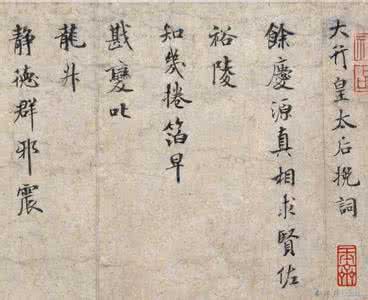 大行皇太后挽詞
餘慶源真相求賢佐
裕陵
知幾捲箔早
戡變叱
龍升
静德群邪震